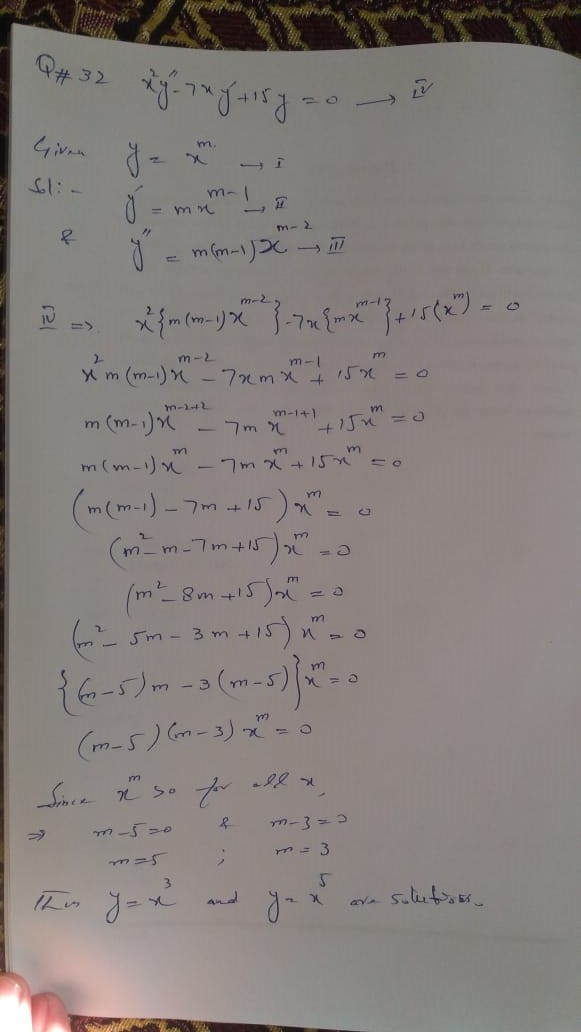 Q#32 x²y″-7xy′+15y=0 → IV
Given y = x^m. → I
Sol:- y′ = mx^{m-1} → II
& y″ = m(m-1)x^{m-2} → III
IV ⇒. x²{m(m-1)x^{m-2}}-7x{mx^{m-1}}+15(x^m) = 0
x²m(m-1)x^{m-2} - 7xmx^{m-1} + 15x^m = 0
m(m-1)x^{m-2+2} - 7mx^{m-1+1} + 15x^m = 0
m(m-1)x^m - 7mx^m + 15x^m = 0
(m(m-1) - 7m + 15)x^m = 0
(m²-m-7m+15)x^m = 0
(m²-8m+15)x^m = 0
(m²-5m-3m+15)x^m = 0
{(m-5)m-3(m-5)}x^m = 0
(m-5)(m-3)x^m = 0
Since x^m so for all x,
⇒ m-5=0 & m-3=0
m=5 ; m=3
Thus y=x³ and y=x⁵ are solutions.